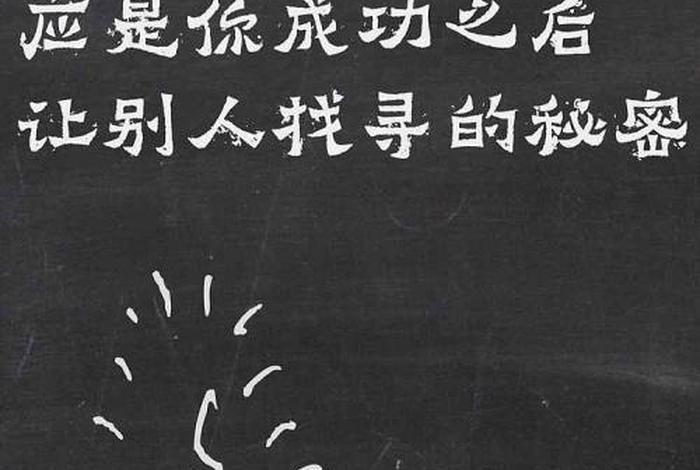 应是你成功之后
让别人找寻的秘密